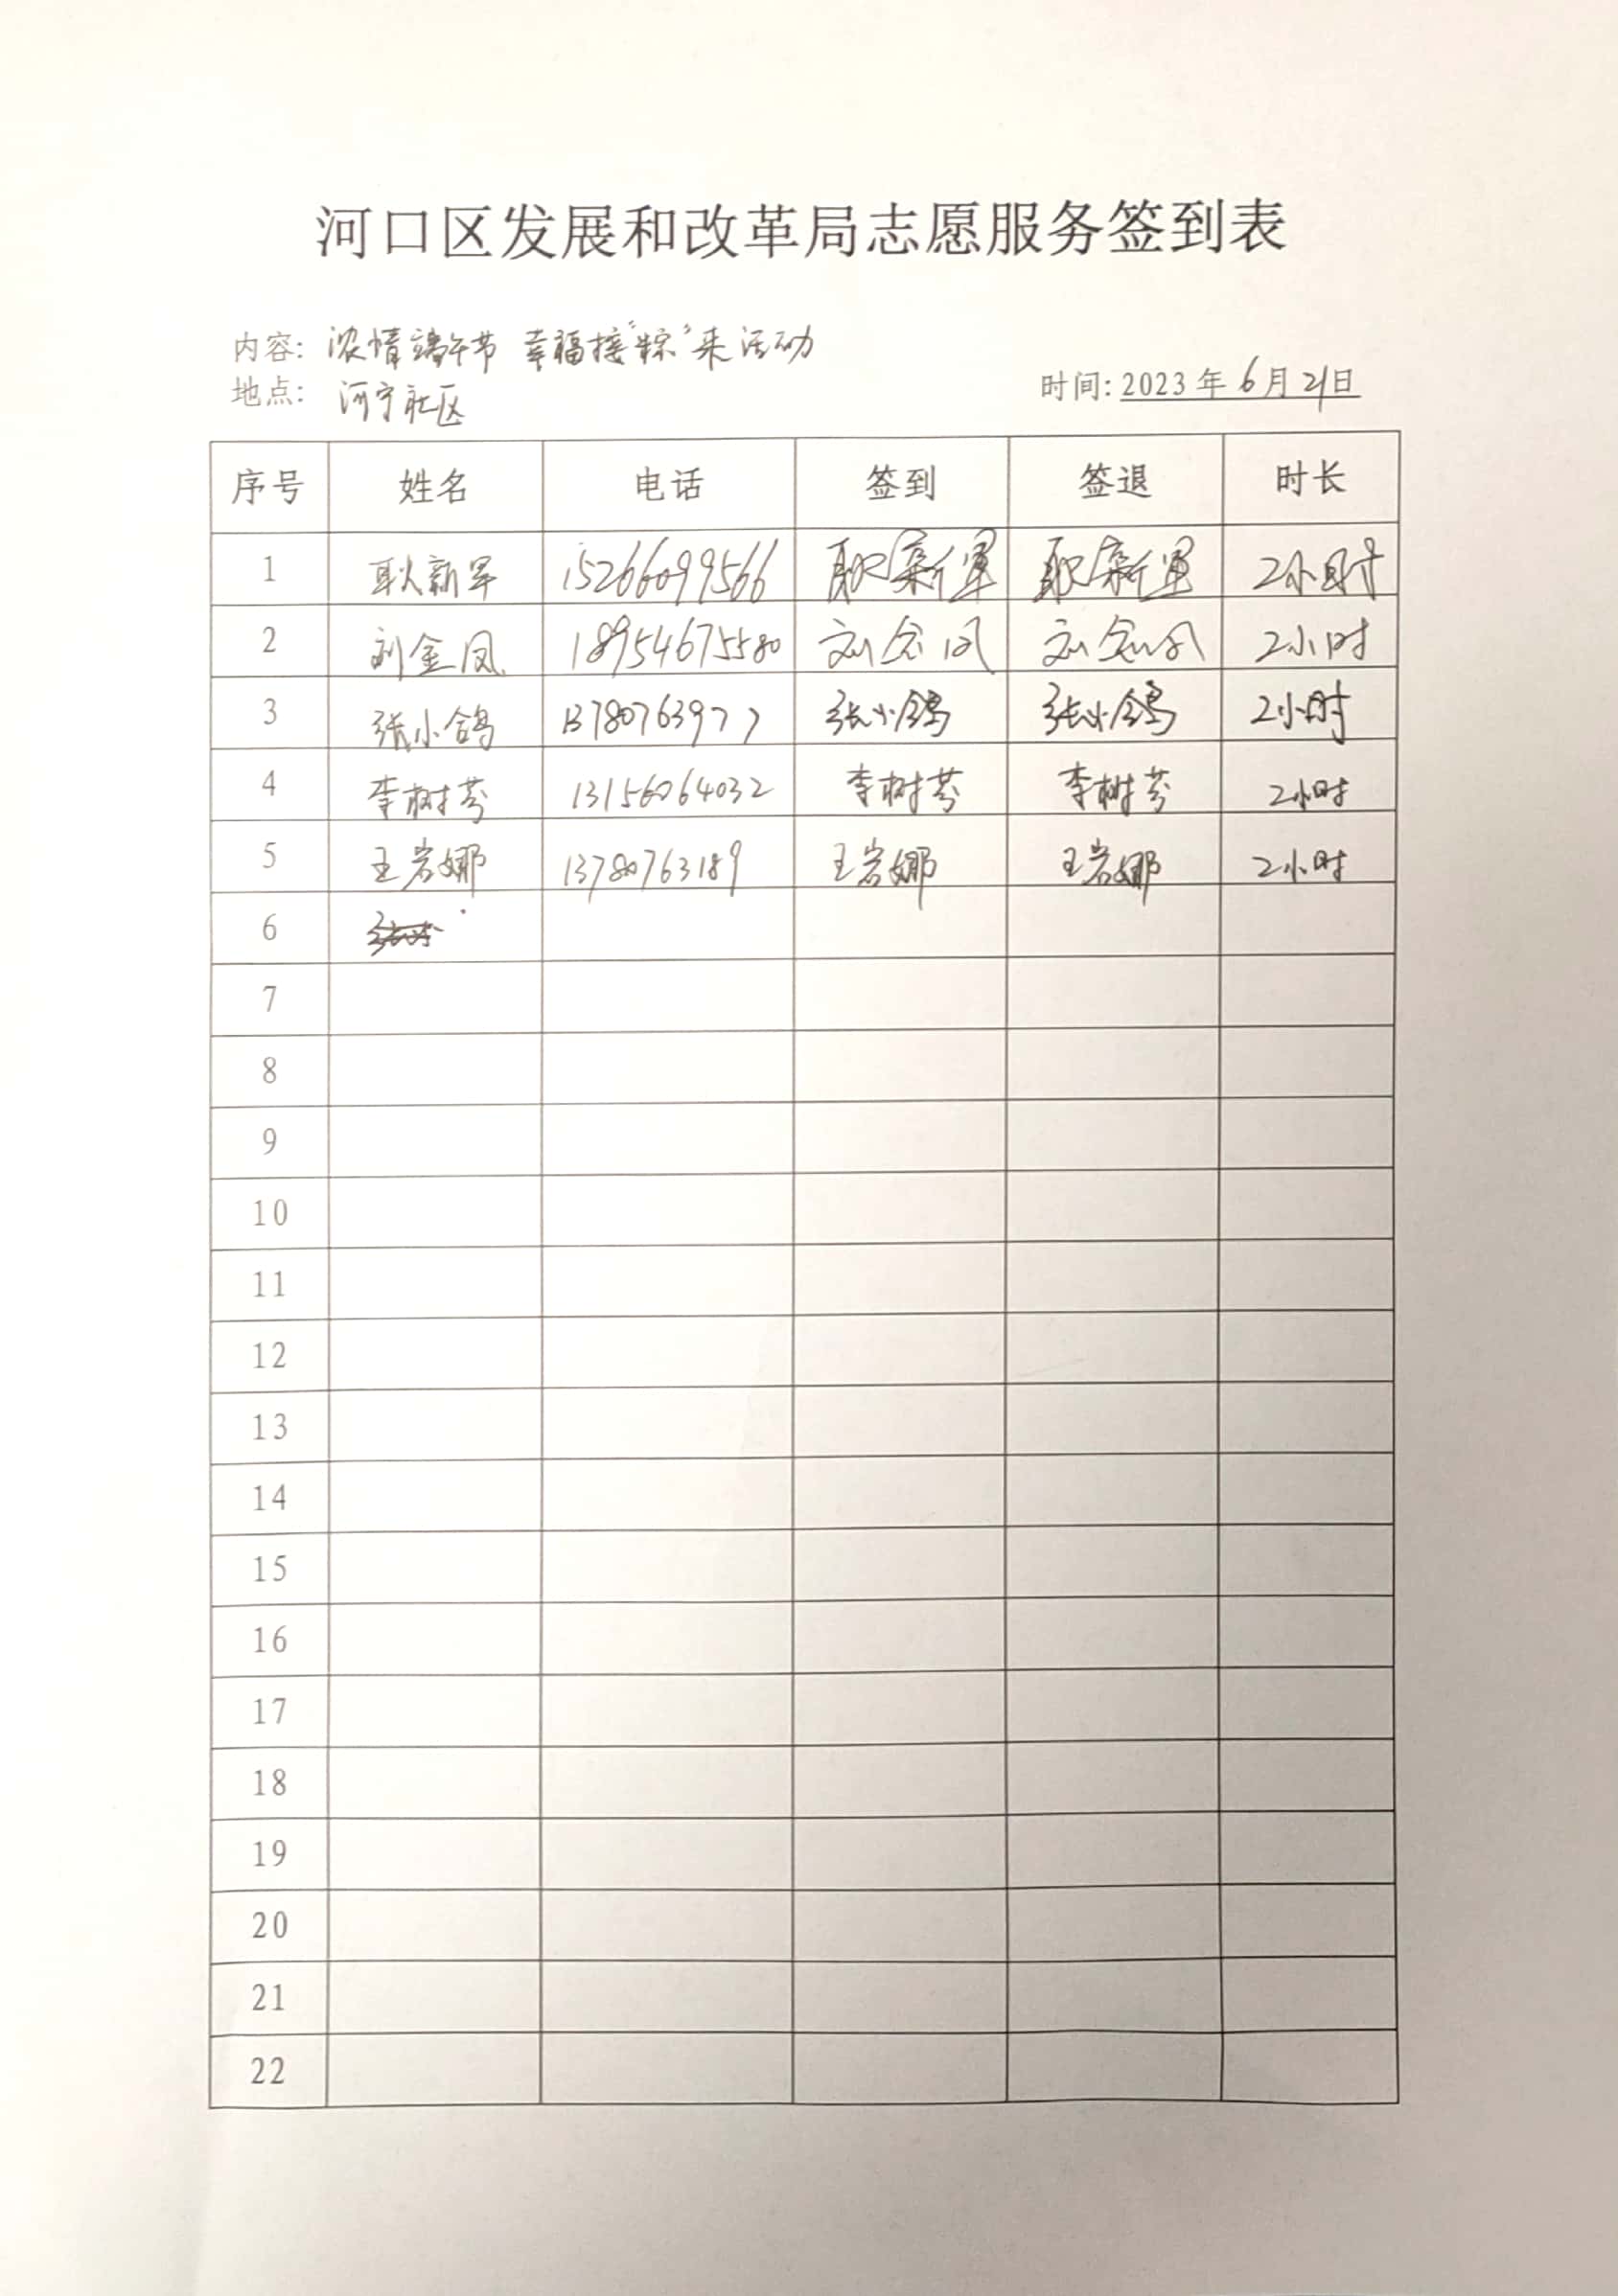 河口区发展和改革局志愿服务签到表
内容: 浓情端午节 幸福接“粽”来活动
地点: 河宁社区
时间: 2023年6月21日
序号 姓名 电话 签到 签退 时长
1 耿新军 15266099566 耿新军 耿新军 2小时
2 刘金凤 18954675580 刘金凤 刘金凤 2小时
3 张小鸽 13780763977 张小鸽 张小鸽 2小时
4 李树芬 13156064032 李树芬 李树芬 2小时
5 王岩娜 13780763189 王岩娜 王岩娜 2小时
6
7
8
9
10
11
12
13
14
15
16
17
18
19
20
21
22